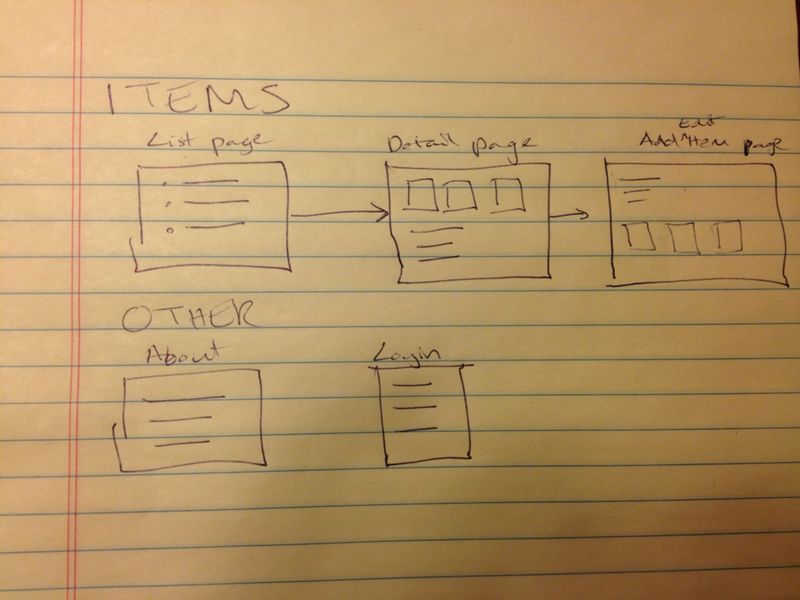 ITEMS
List page
Detail page
Edit
Add Item page
OTHER
About
Login